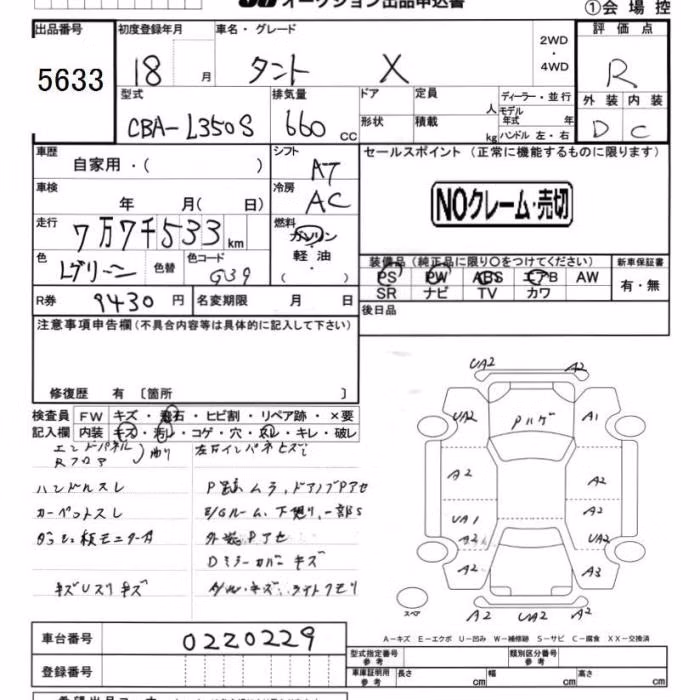 オークション出品申込書
①会場控
出品番号 初度登録年月 車名・グレード 2WD・4WD 評価点
5633 18 月 タント X R
型式 排気量 ドア 定員 人 ディーラー・並行 外装 内装
CBA-L350S 660 cc 形状 積載 kg モデル年式 年 ハンドル 左・右 D C
車歴 自家用・( ) シフト AT セールスポイント (正常に機能するものに限ります)
車検 年 月( 日) 冷房 AC NOクレーム・売切
走行 7万7千533 km 燃料 ガソリン・軽油・( )
色 Lグリーン 色替 色コード G39 装備品 (純正品に限り○をつけてください) 新車保証書
PS PW ABS エアB AW 有・無
SR ナビ TV カワ
R券 9430 円 名変期限 月 日 後日品
注意事項申告欄 (不具合内容等は具体的に記入して下さい)
修復歴 有 〔箇所 〕
検査員 FW キズ・飛石・ヒビ割・リペア跡・×要
記入欄 内装 キズ・汚レ・コゲ・穴・スレ・キレ・破レ
エンドパネル
Rフロア
ハンドルスレ
カーペットスレ
外装Pアセ
Dミラーカバーキズ
UA2 A2
UA2 Pハゲ A1
A2 A2
UA1 A2
A2 UA2
A2 A3
A2 UA2 A2
スペア
A-キズ E-エクボ U-凹み W-補修跡 S-サビ C-腐食 XX-交換済
車台番号 0220229 型式指定番号 参考 類別区分番号 参考
登録番号 車庫証明用 参考 長さ cm 幅 cm 高さ cm